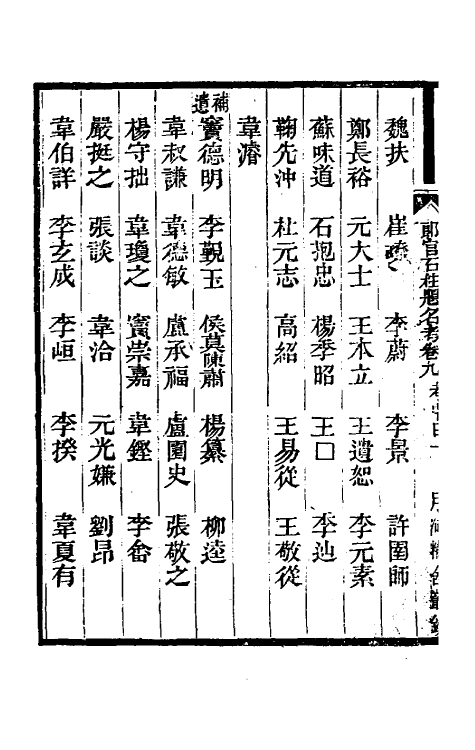 郎官石柱題名考卷九
魏扶 崔 李蔚 李景 許圉師
鄭長裕 元大士 王本立 王遺恕 李元素
蘇味道 石抱忠 楊季昭 王□ 李迪
鞠先沖 杜元志 高紹 王易從 王敬從
韋濬
補遺
竇德明 李覲玉 侯莫陳肅 楊纂 柳逵
韋叔謙 韋德敏 盧承福 盧園史 張敬之
楊守拙 韋瓊之 竇崇嘉 韋鏗 李畬
嚴挺之 張談 韋洽 元光嫌 劉昂
韋伯詳 李玄成 李峘 李揆 韋夏有